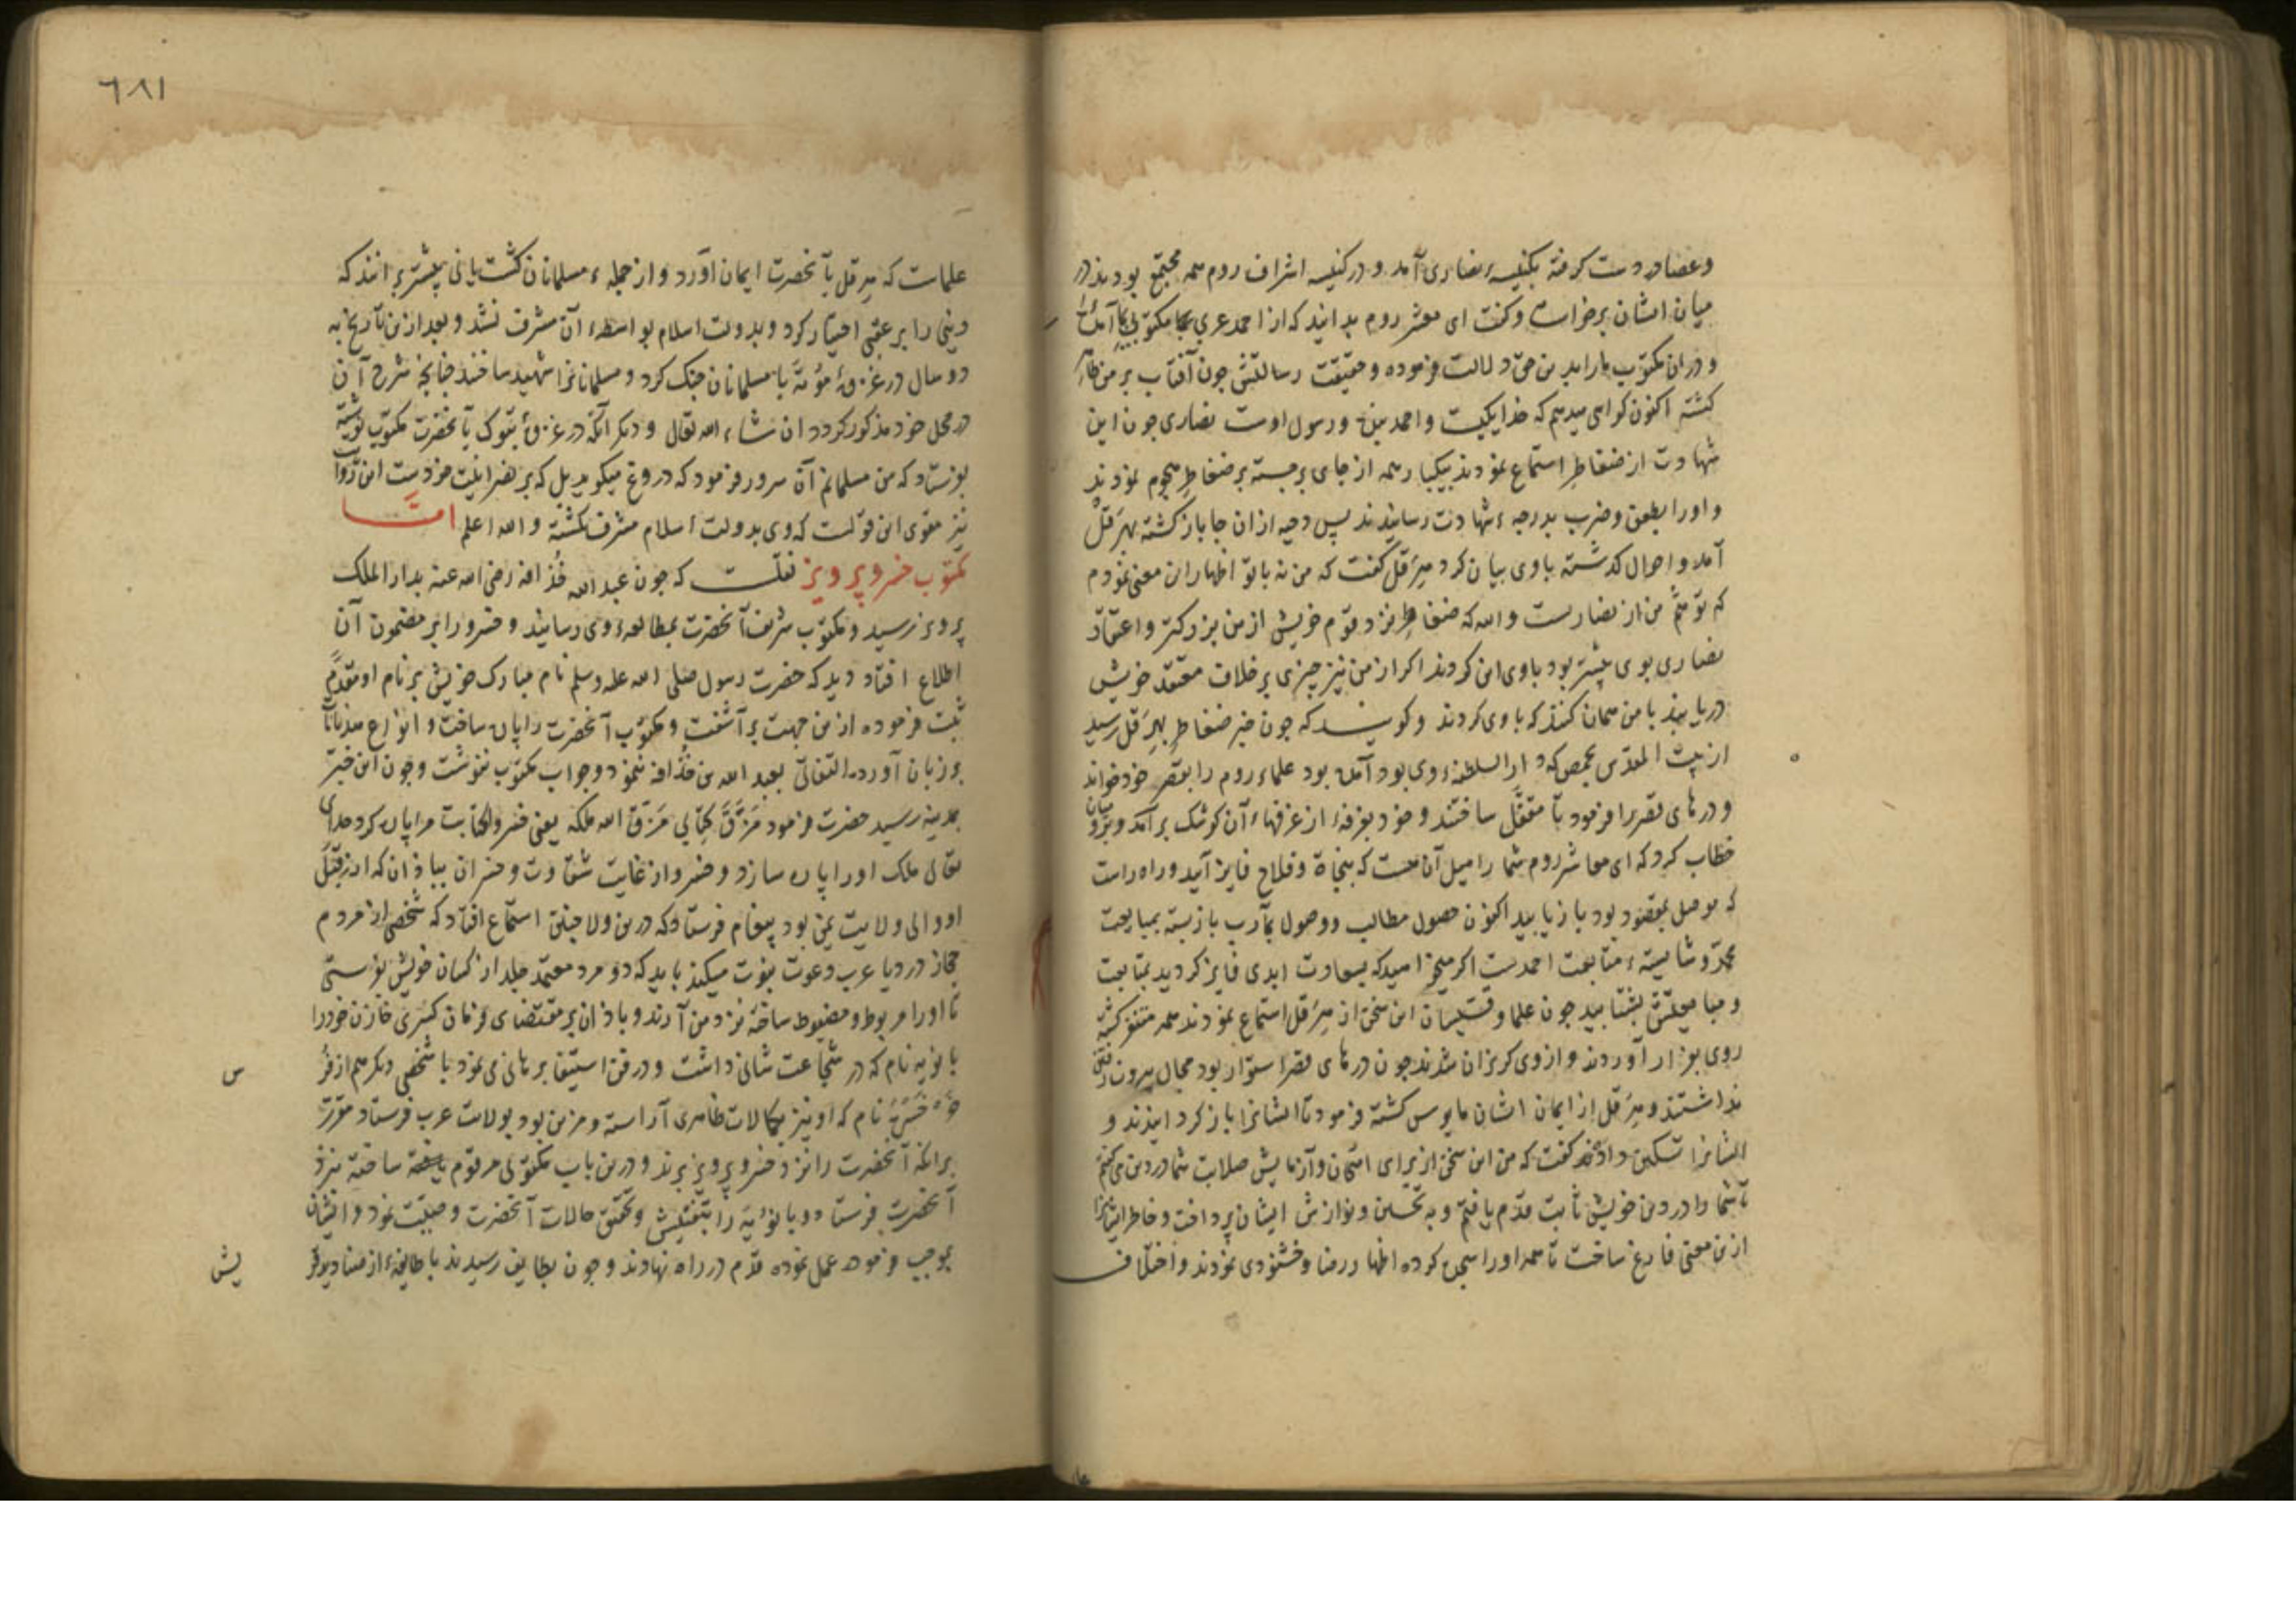 وعصا در دست کرفته بکنیسهٔ نصاری آمد و در کنیسه اشراف روم همه مجتمع بودند در
میان ایشان برخواست و کفت ای معشر روم بدانید که از احمد عربی بما مکتوبی آمده
و در ان مکتوب ما را بدین حق دلالت فرموده و حقیقت رسالتش چون آفتاب بر من ظاهر
کشته اکنون کواهی میدهم که خدا یکیست و احمد بنده و رسول اوست نصاری چون این
شهادت از ضغاطر استماع نمودند بیکبار همه از جای برجسته بر ضغاطر هجوم نمودند
و او را بطعن و ضرب بدرجهٔ شهادت رسانیدند پس دحیه از ان جا باز کشته بهرقل
آمد و احوال کذشته با وی بیان کرد هرقل کفت که من نه با تو اظهار این معنی نمودم
که توهم من از نصاریست والله که ضغاطر نزد قوم خویش از من بزرکتر و اعتقاد
نصاری بوی بیشتر بود با وی این کردند اکر از من نیز چیزی بر خلاف معتقد خویش
دریابند با من همان کنند که با وی کردند و کویند که چون خبر ضغاطر بهرقل رسید
از بیت المقدس بحمص که دار السلطنهٔ وی بود آمده بود علماء روم را بقصر خود خواند
و درهای قصر را فرمود تا مقفل ساختند و خود بغرفهٔ از غرفهاء آن کوشک برآمد و بر رومیان
خطاب کرد که ای معاشر روم شما را میل آن هست که بنجاة و فلاح فایز آید و راه راست
که موصل بمقصود بود باز یابید اکنون حصول مطالب و وصول مآرب باز بسته بمبایعت
محمد و شایستهٔ متابعت احمدست اکر میخواهید که بسعادت ابدی فایز کردید بمتابعت
و مبایعتش بشتابید چون علما و قسیسان این سخن از هرقل استماع نمودند همه متنفر کشته
روی بفرار آوردند و از وی کریزان شدند چون درهای قصر استوار بود مجال بیرون رفتن
نداشتند و هرقل از ایمان ایشان مایوس کشته فرمود تا ایشانرا باز کردانیدند و
ایشانرا تسکین داده کفت که من این سخن از برای امتحان و آزمایش صلابت شما در دین می کفتم
تا شما را در دین خویش ثابت قدم یافتم و به تحسین و نوازش ایشان پرداخت و خاطر ایشانرا
ازین معنی فارغ ساخت تا همه او را سجده کرده اظهار رضا و خشنودی نمودند و اختلاف
٦٨١
علمات که هرقل بآنحضرت ایمان آورد و از جملهٔ مسلمانان کشت یا نی بیشتر برانند که
دنیی را بر عقبی اختیار کرد و بدولت اسلام بواسطهٔ آن مشرف نشد و بعد ازین تاریخ به
دو سال در غزوهٔ موته با مسلمانان جنک کرد و مسلمانانرا شهید ساختند چنانچه شرح آن
در محل خود مذکور کردد ان شاء الله تعالی و دیکر آنکه در غزوهٔ تبوک بآنحضرت مکتوب نوشته
بفرستاد که من مسلمانم آن سرور فرمود که دروغ میکوید بل که بر نصرانیت خودست این روایت
نیز مقوی این قولست که وی بدولت اسلام مشرف نکشته والله اعلم امّا
مکتوب خسرو پرویز نقلست که چون عبد الله حذافه رضی الله عنه بدار الملک
پرویز رسید و مکتوب شریف آنحضرت بمطالعهٔ وی رسانید و خسرو را بر مضمون آن
اطلاع افتاد دید که حضرت رسول صلی الله علیه وسلم نام مبارک خویش بر نام او مقدم
ثبت فرموده ازین جهت برآشفت و مکتوب آنحضرت را پاره ساخت و انواع هذیانات
بر زبان آورده التفاتی بعبد الله بن حذافه ننمود و جواب مکتوب ننوشت و چون این خبر
بمدینه رسید حضرت فرمود مَزَّقَ کتابی مَزَّقَ الله ملکه یعنی خسرو کتابت مرا پاره کرد خدای
تعالی ملک او را پاره سازد و خسرو از غایت شقاوت و خسران بباذان که از قبل
او والی ولایت یمن بود پیغام فرستاد که درین ولا چنین استماع افتاد که شخصی از مردم
حجاز در دیار عرب دعوت نبوت میکند باید که دو مرد معتمد جلد از کسان خویش بفرستی
تا او را مربوط و مضبوط ساخته نزد من آرند و باذان بر مقتضای فرمان کسری خازن خود را
بابویه نام که در شجاعت شانی داشت و در فن استیفا برهانی می نمود با شخصی دیکر هم از فُر
س
خُرخُسره نام که او نیز بکمالات ظاهری آراسته و مزین بود بولایت عرب فرستاد مقرر
برآنکه آنحضرت را نزد خسرو پرویز برند و درین باب مکتوبی مرقوم ساخته نزد
آنحضرت فرستاد و بابویه را بتفتیش و تحقیق حالات آنحضرت وصیت نمود و ایشان
بموجب فرموده عمل نموده قدم در راه نهادند و چون بطایف رسیدند با طایفهٔ از صنادید قر
یش